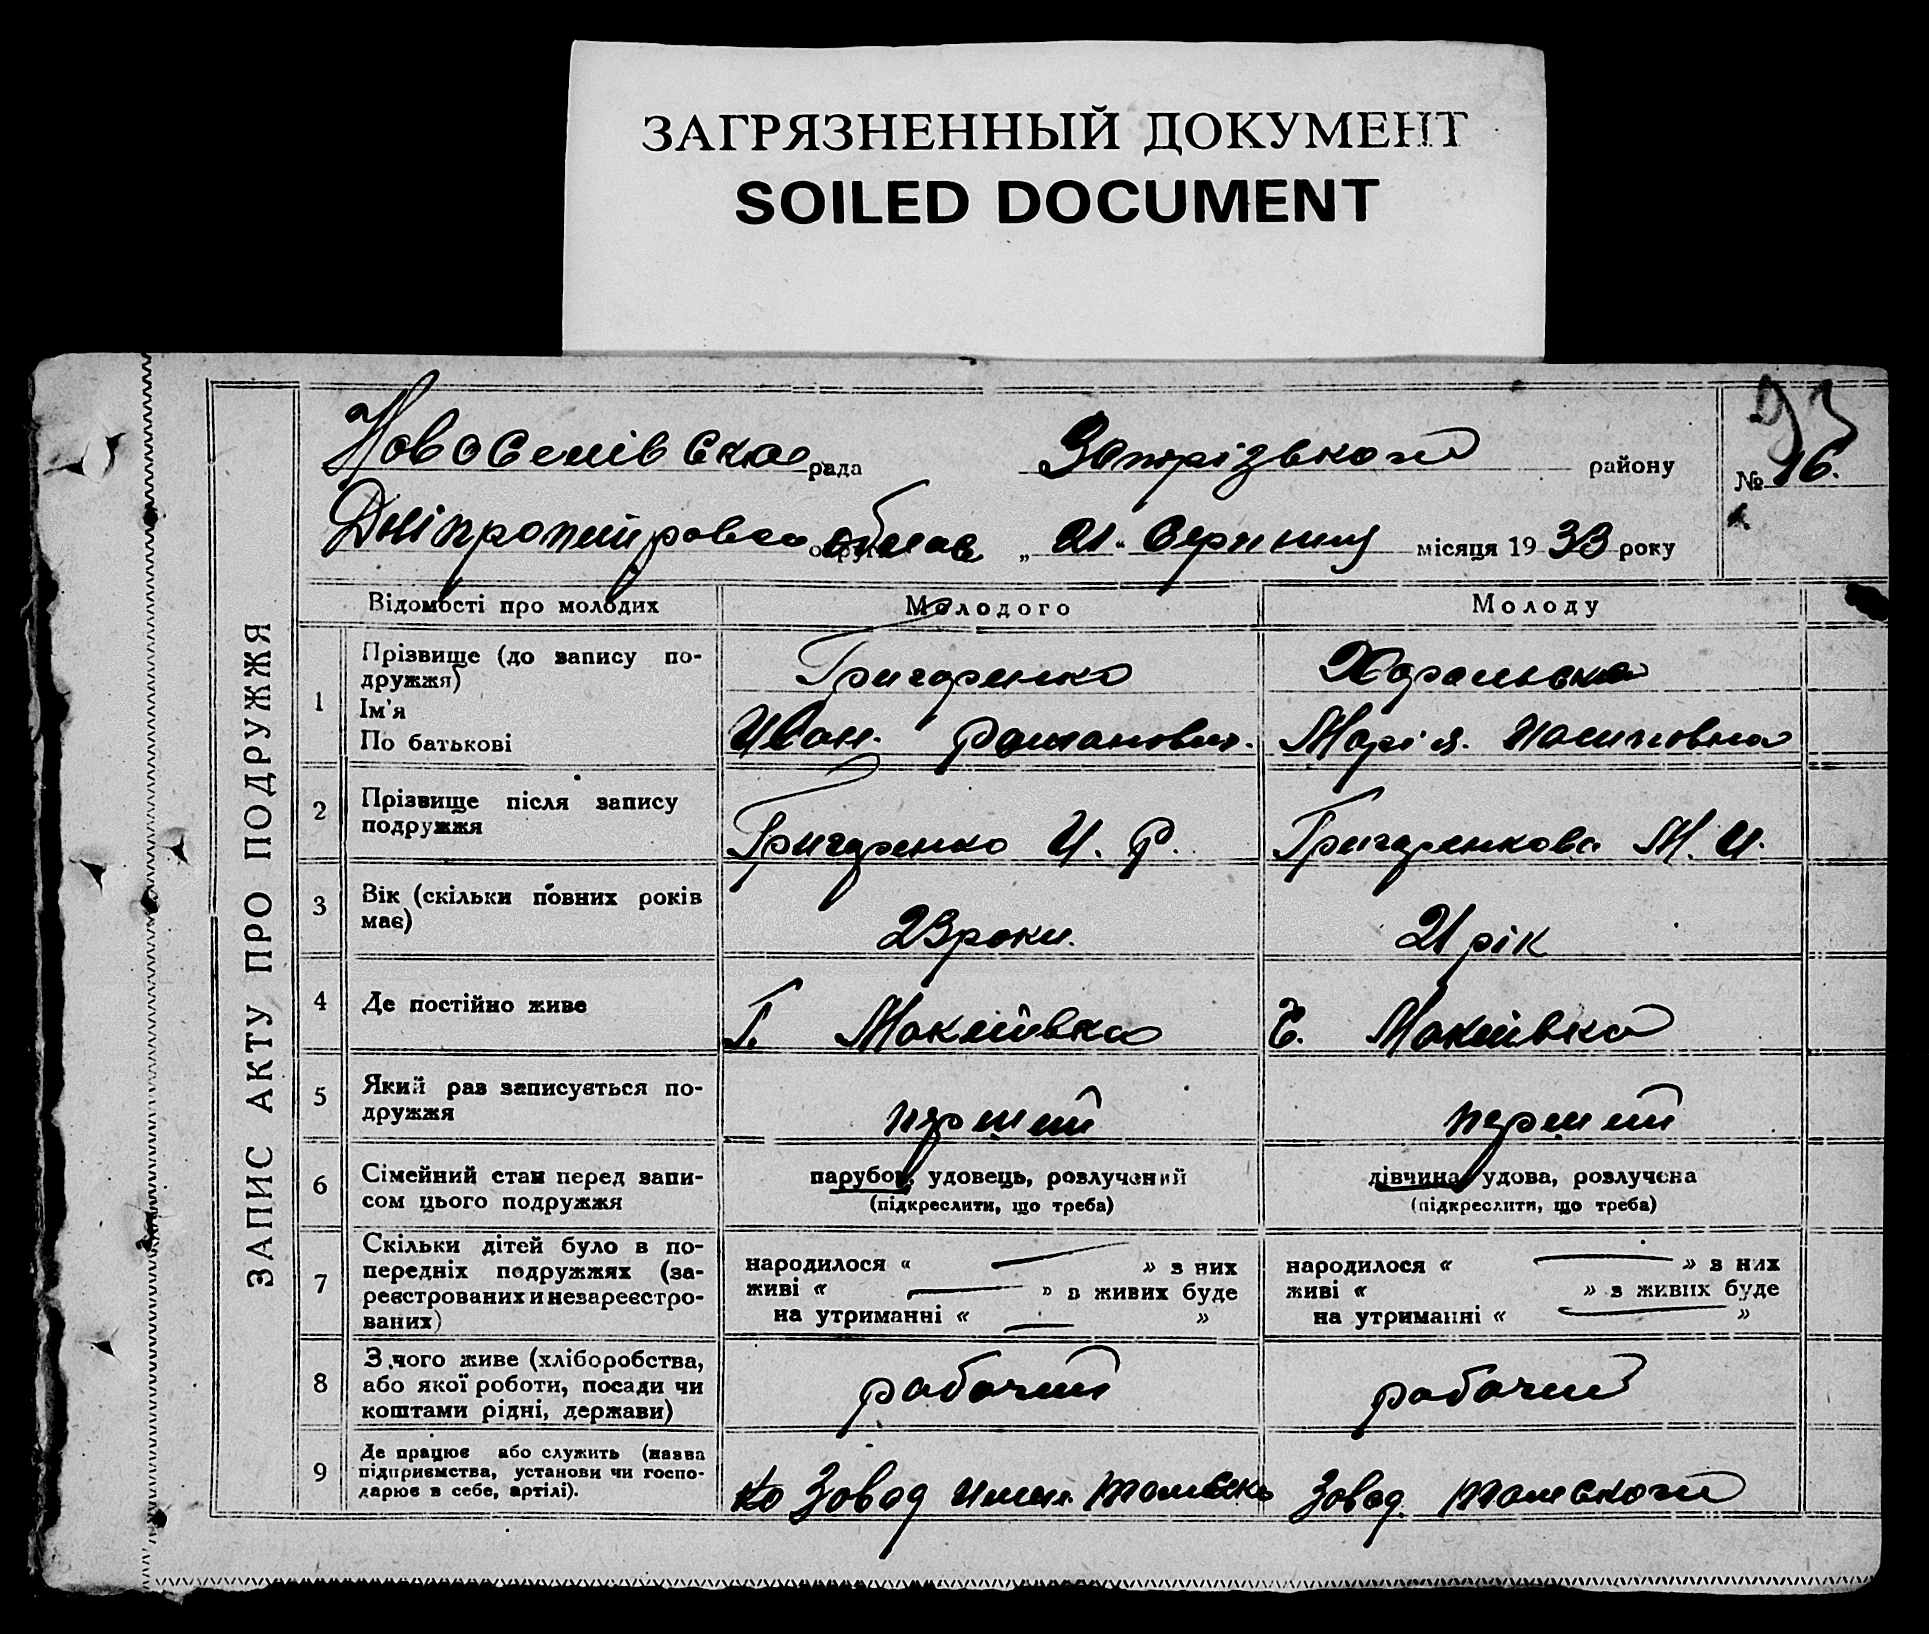 ЗАГРЯЗНЕННЫЙ ДОКУМЕНТ
SOILED DOCUMENT
93
Новоселівська рада Запорізького району № 16.
Дніпропетровська облас „21“ Серпня місяця 1933 року
ЗАПИС АКТУ ПРО ПОДРУЖЖЯ
Відомості про молодих Молодого Молоду
1 Прізвище (до запису по-
дружжя) Григоренко
Ім'я
По батькові Иван. Романович. Марія. Иосиповна
2 Прізвище після запису
подружжя Григоренко И. Р. Григоренкова М. И.
3 Вік (скільки повних років
має) 23 роки. 21 рік
4 Де постійно живе Г. Макеївка Г. Макеївка
5 Який раз записується по-
дружжя перший перший
6 Сімейний стан перед запи-
сом цього подружжя парубок, удовець, розлучений дівчина, удова, розлучена
(підкреслити, що треба) (підкреслити, що треба)
7 Скільки дітей було в по-
передніх подружжях (за-
реєстрованих и незареєстро-
ваних) народилося « — » з них народилося « — » з них
живі « — » з живих буде живі « » з живих буде
на утриманні « — » на утриманні « — »
8 З чого живе (хліборобства,
або якої роботи, посади чи
коштами рідні, держави) рабочий рабочий
9 Де працює або служить (назва
підприємства, установи чи госпо-
дарює в себе, артілі). Завод имени Томско Завод. Томского